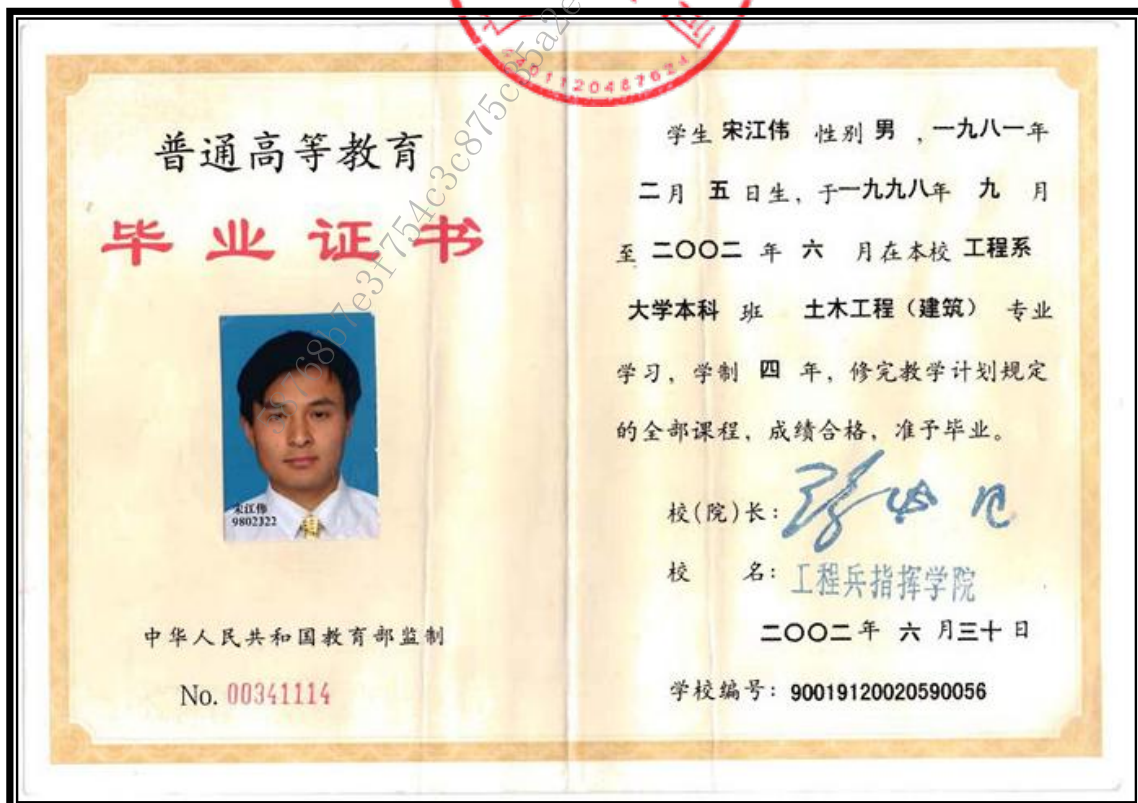 4401120487624
普通高等教育
毕业证书
宋江伟
9802322
中华人民共和国教育部监制
No. 00341114
学生 宋江伟 性别 男 ，一九八一年
二月 五 日生，于一九九八年 九 月
至 二〇〇二 年 六 月在本校 工程系
大学本科 班 土木工程（建筑） 专业
学习，学制 四 年，修完教学计划规定
的全部课程，成绩合格，准予毕业。
校(院)长：
校 名：工程兵指挥学院
二〇〇二年 六 月三十 日
学校编号：90019120020590056